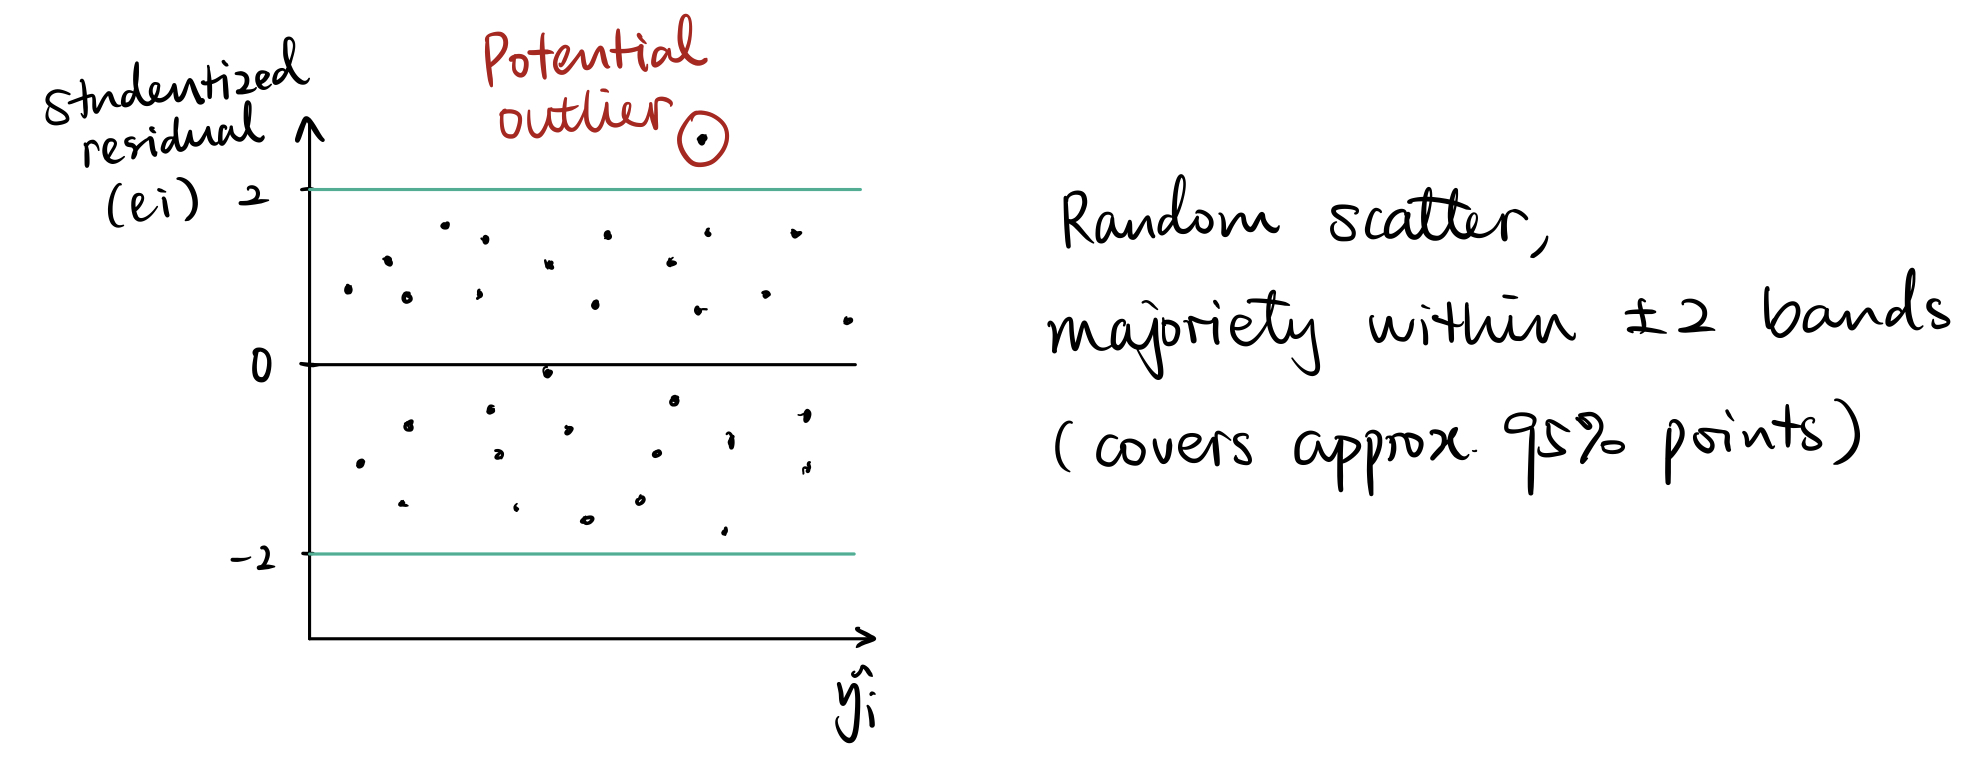 Studentized
residual
(ei)
Potential
outlier
2
0
-2
ŷi
Random scatter,
majoriety within ±2 bands
(covers approx. 95% points)